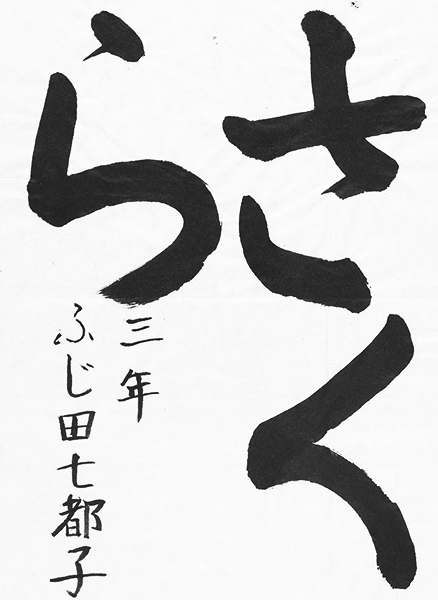 さく
ら
三年
ふじ田七都子